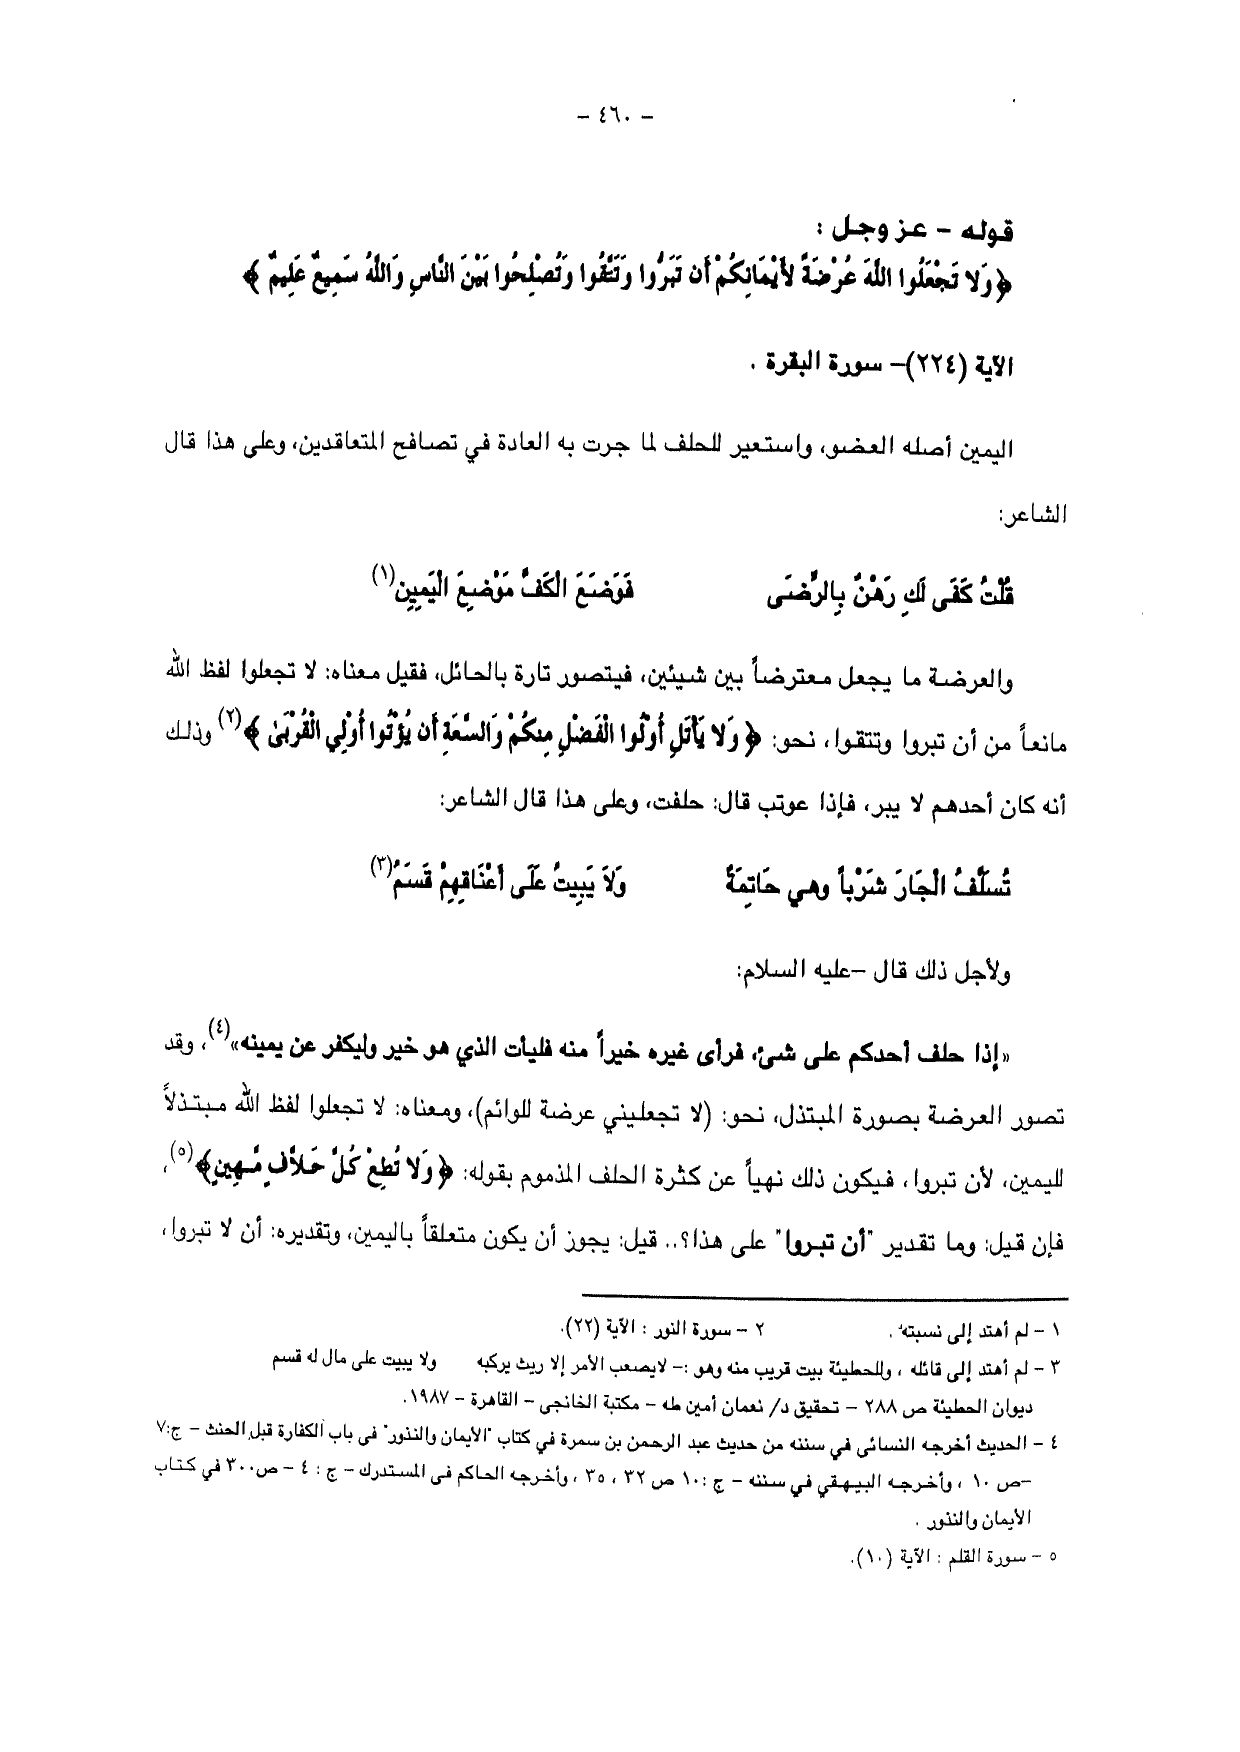 - ٤٦٠ -
قوله - عز وجل :
﴿وَلا تَجْعَلُوا اللَّهَ عُرْضَةً لأَيْمَانِكُمْ أَن تَبَرُّوا وَتَتَّقُوا وَتُصْلِحُوا بَيْنَ النَّاسِ وَاللَّهُ سَمِيعٌ عَلِيمٌ ﴾
الآية (٢٢٤)- سورة البقرة .
اليمين أصله العضو، واستعير للحلف لما جرت به العادة في تصافح المتعاقدين، وعلى هذا قال
الشاعر:
قُلْتُ كَفَى لَكِ رَهْنٌ بِالرِّضَى فَوَضَعَ الْكَفَّ مَوْضِعَ الْيَمِينِ(١)
والعرضة ما يجعل معترضاً بين شيئين، فيتصور تارة بالحائل، فقيل معناه: لا تجعلوا لفظ الله
مانعاً من أن تبروا وتتقوا، نحو: ﴿ وَلا يَأْتَلِ أُوْلُوا الْفَضْلِ مِنكُمْ وَالسَّعَةِ أَن يُؤْتُوا أُوْلِي الْقُرْبَىٰ ﴾(٢) وذلك
أنه كان أحدهم لا يبر، فإذا عوتب قال: حلفت، وعلى هذا قال الشاعر:
تُسَلَّفُ الْجَارَ شَرْباً وهي حَاتِمَةٌ وَلاَ يَبِيتُ عَلَى أَعْنَاقِهِمْ قَسَمُ(٣)
ولأجل ذلك قال -عليه السلام:
«إذا حلف أحدكم على شئ، فرأى غيره خيراً منه فليأت الذي هو خير وليكفر عن يمينه»(٤)، وقد
تصور العرضة بصورة المبتذل، نحو: (لا تجعليني عرضة للوائم)، ومعناه: لا تجعلوا لفظ الله مبتذلاً
لليمين، لأن تبروا، فيكون ذلك نهياً عن كثرة الحلف المذموم بقوله: ﴿ وَلا تُطِعْ كُلَّ حَلاَّفٍ مَّهِينٍ﴾(٥)،
فإن قيل: وما تقدير "أن تبروا" على هذا؟.. قيل: يجوز أن يكون متعلقاً باليمين، وتقديره: أن لا تبروا،
١ - لم أهتد إلى نسبته. ٢ - سورة النور : الآية (٢٢).
٣ - لم أهتد إلى قائله ، وللحطيئة بيت قريب منه وهو :- لايصعب الأمر إلا ريث يركبه ولا يبيت على مال له قسم
ديوان الحطيئة ص ٢٨٨ - تحقيق د/ نعمان أمين طه - مكتبة الخانجى - القاهرة - ١٩٨٧.
٤ - الحديث أخرجه النسائى في سننه من حديث عبد الرحمن بن سمرة في كتاب "الأيمان والنذور" فى باب الكفارة قبل الحنث - ج:٧
-ص ١٠ ، وأخرجه البيهقي في سننه - ج :١٠ ص ٣٢ ، ٣٥ ، وأخرجه الحاكم فى المستدرك - ج : ٤ - ص٣٠٠ في كتاب
الأيمان والنذور .
٥ - سورة القلم : الآية (١٠).